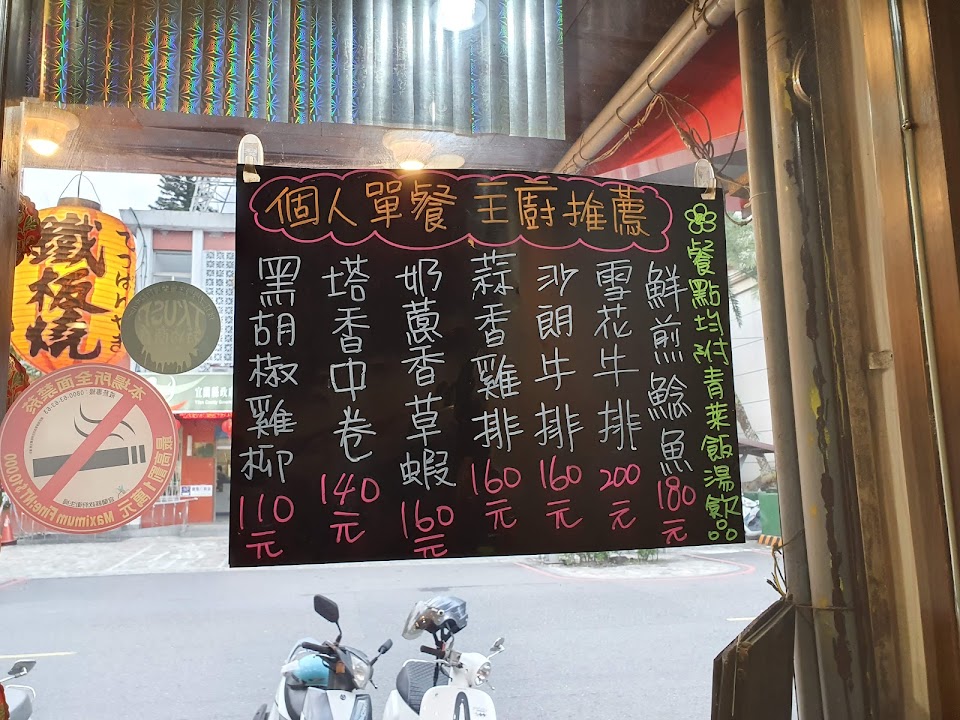 個人單餐 主廚推薦
餐點均附青菜飯湯飲品
鮮煎鯰魚180元
雪花牛排200元
沙朗牛排160元
蒜香雞排160元
奶蔥香草蝦160元
塔香中卷140元
黑胡椒雞柳110元
鐵板燒
てっぱんやき
本場所全面禁菸
最高罰1萬元
Maximum Fine NT$10,000